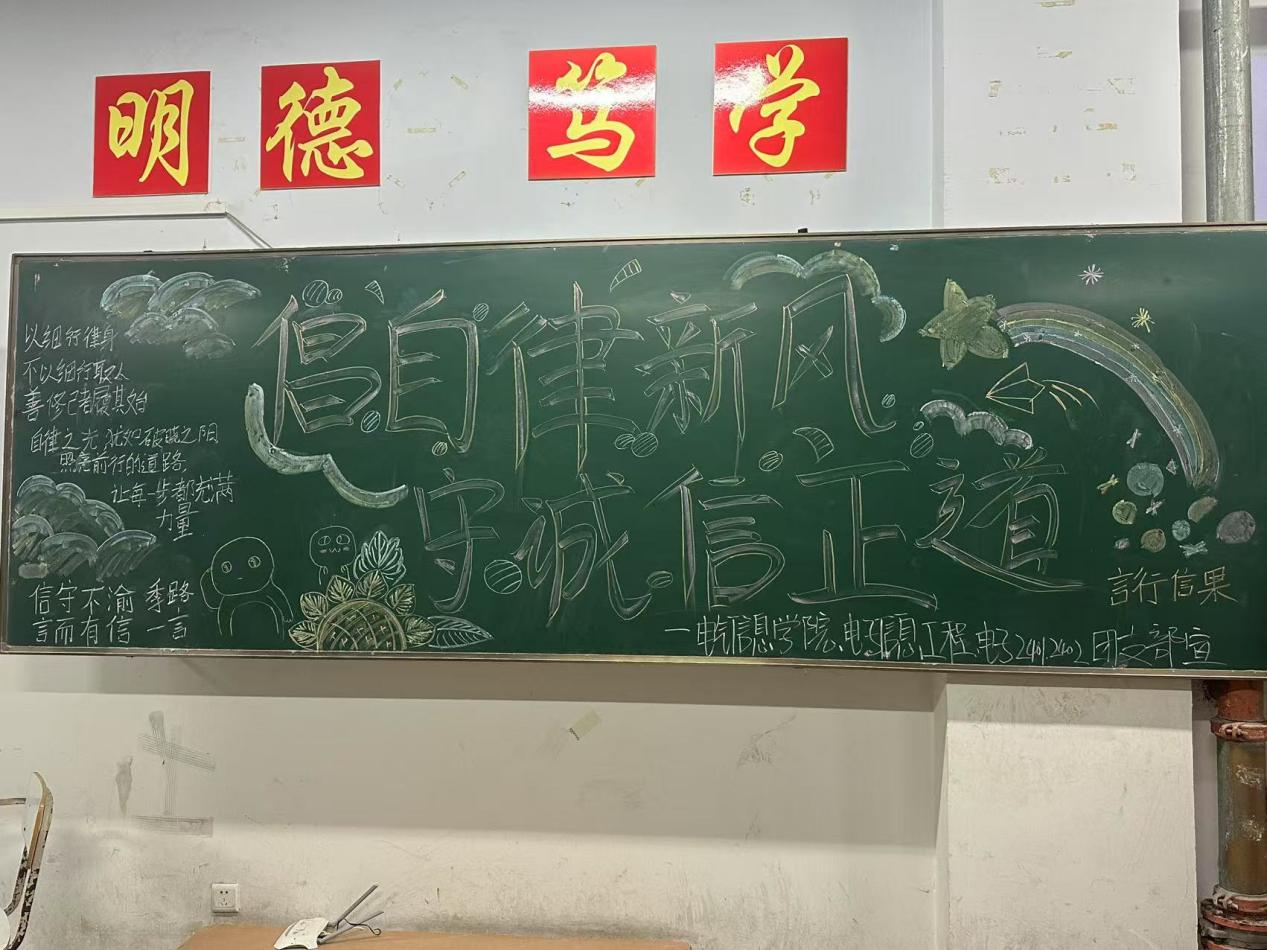 明德 笃学
倡自律新风
守诚信正道
以细行律身
不以细行取人
善修己者履其始
自律之光,犹如破晓之阳
照亮前行的道路,
让每一步都充满
力量
信守不渝 季路
言而有信 一言
言行信果
—电气信息学院、电子信息工程、电子2401,2402团支部宣